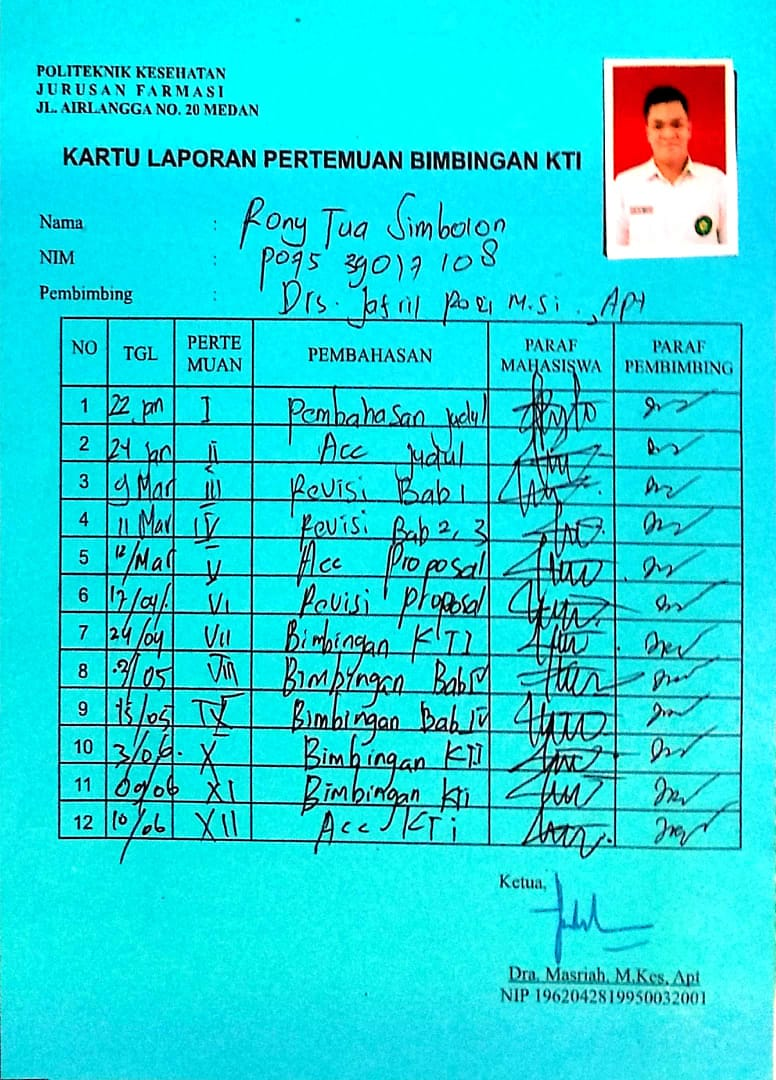 POLITEKNIK KESEHATAN
JURUSAN FARMASI
JL. AIRLANGGA NO. 20 MEDAN
KARTU LAPORAN PERTEMUAN BIMBINGAN KTI
Nama : Rony Tua Simbolon
NIM : P075 39017 108
Pembimbing : Drs. Jafril M.Si., Apt
NO TGL PERTEMUAN PEMBAHASAN PARAF MAHASISWA PARAF PEMBIMBING
1 22 jan I Pembahasan judul
2 24 jan II Acc judul
3 9 Mar III Revisi Bab 1
4 11 Mar IV Revisi Bab 2, 3
5 12/Mar V Acc Proposal
6 17/04/. VI Revisi Proposal
7 24/04 VII Bimbingan KTI
8 2/05 VIII Bimbingan Bab IV
9 15/05 IX Bimbingan Bab IV
10 3/06. X Bimbingan KTI
11 09/06 XI Bimbingan Kti
12 10/06 XII Acc KTi
Ketua,
Dra. Masriah, M.Kes, Apt
NIP 1962042819950032001